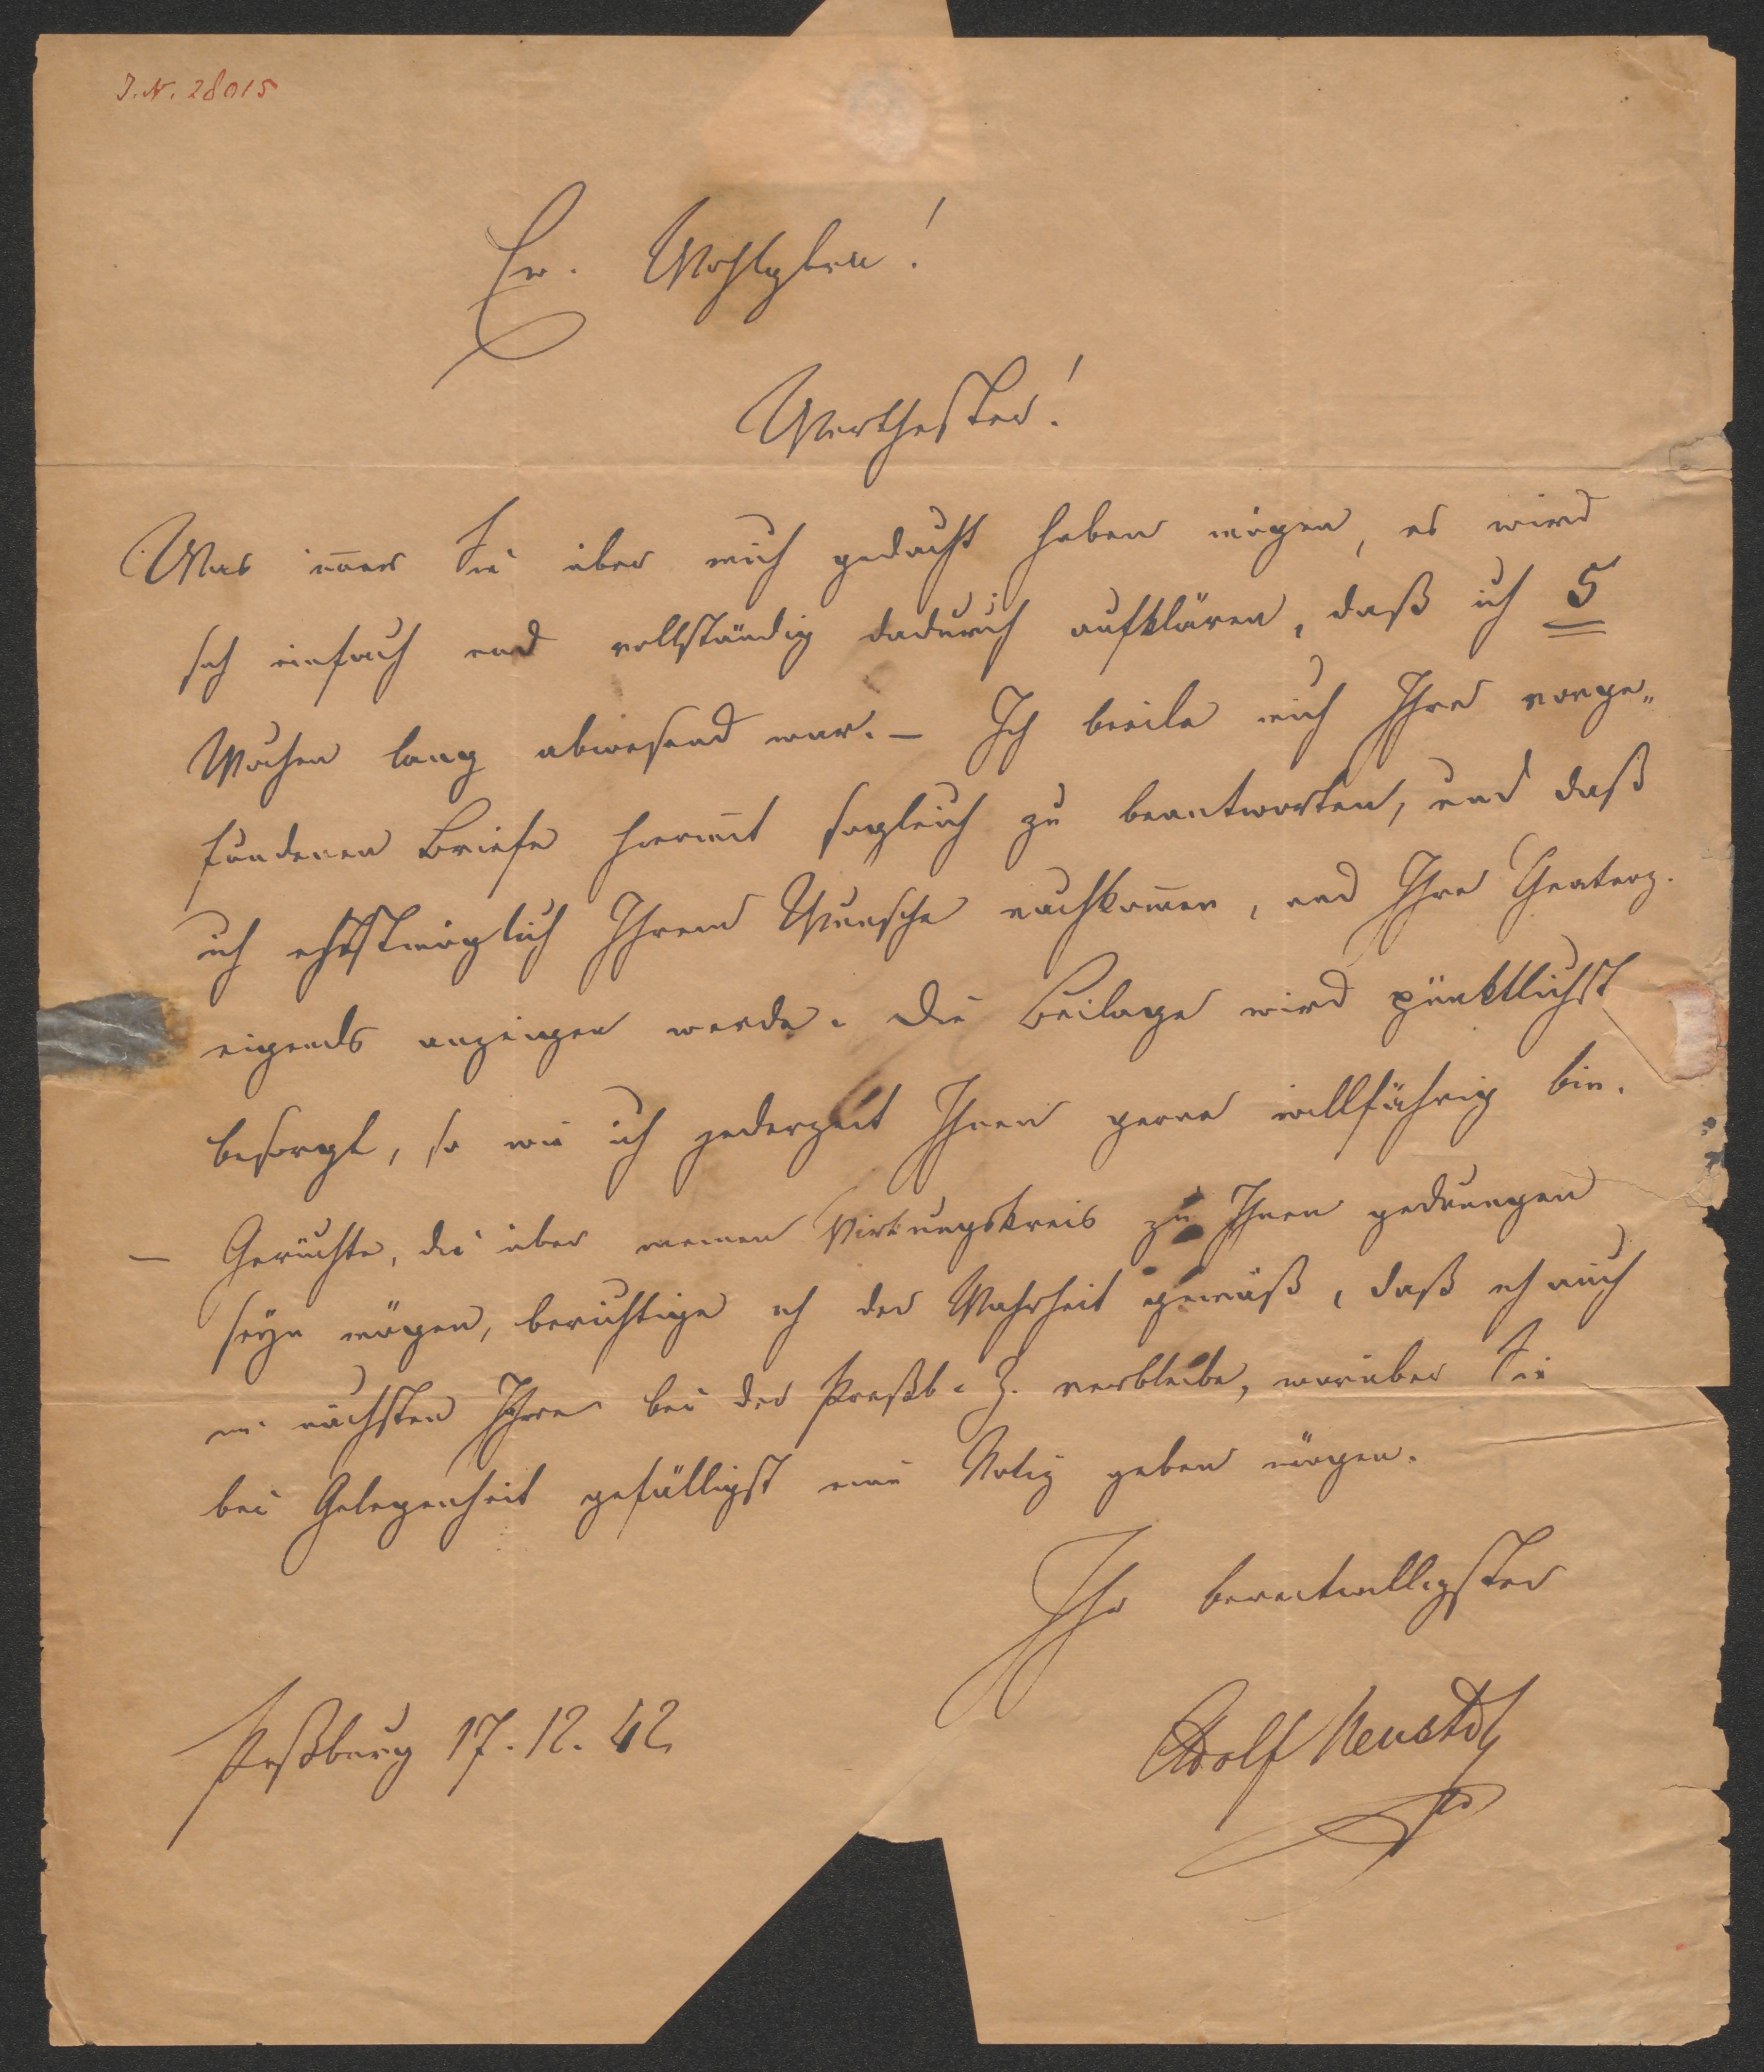 I.N. 28015
Ew. Wohlgebor!
Werthester!
Was im̄er Sie über mich gedacht haben mögen, es wird
sich einfach und vollständig dadurch aufklären, daß ich 5
Wochen lang abwesend war. – Ich beeile mich Ihre vorge„
fundenen Briefe hiermit sogleich zu beantworten, und daß
ich ehestmöglich Ihrem Wunsche nachkom̄en, und Ihre
eigends anzeigen werde. Die Beilage wird pünktlichst
besorgt, so wie ich jederzeit Ihnen gerne willfährig bin.
– Gerüchte, die über meinen Wirkungskreis zu Ihnen gedrungen
seyn mögen, berichtige ich der Wahrheit gemäß, daß ich auch
im nächsten Jahre bei der Preßb. Z. verbleibe, worüber Sie
bei Gelegenheit gefälligst eine Notiz geben mögen.
Ihr bereitwilligster
Preßburg 17. 12. 42
Adolf Neustdt